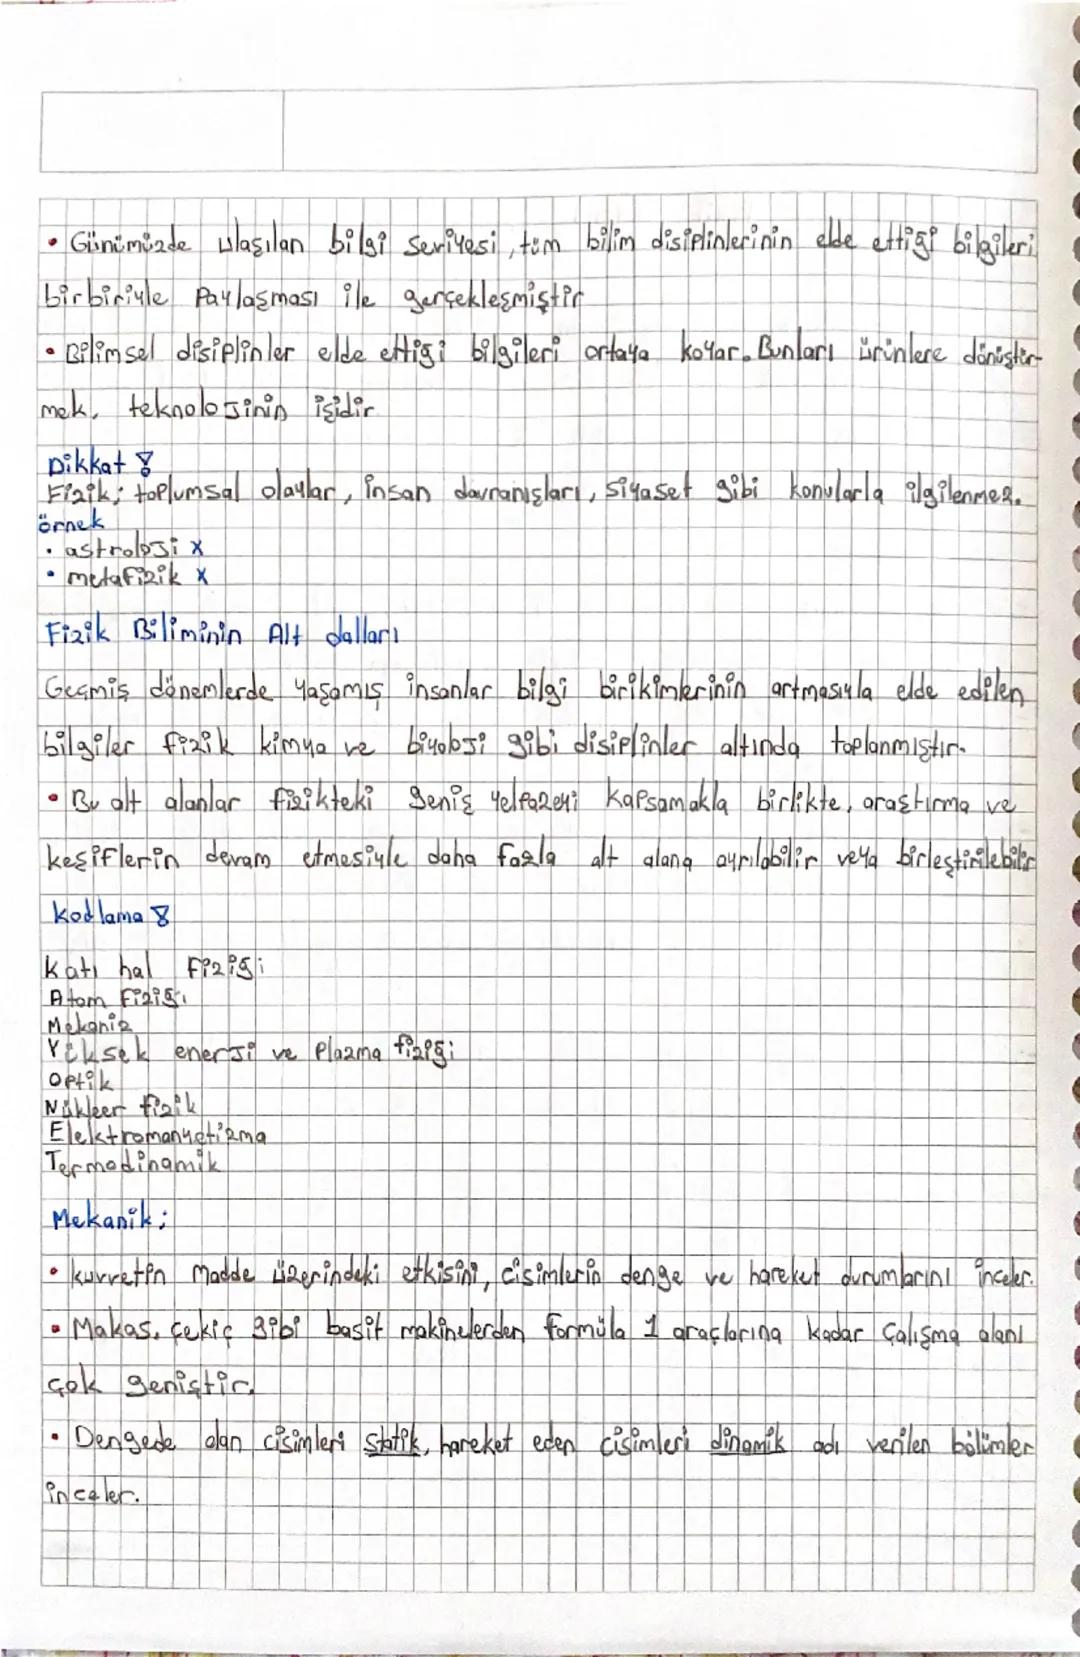 • Günümüzde ulaşılan bilgi seviyesi, tüm bilim disiplinlerinin elde ettiği bilgileri
birbiriyle Paylaşması ile gerçekleşmiştir
• Bilimsel disiplinler elde ettiği bilgileri ortaya koyar. Bunları ürünlere dönüştür-
mek, teknolojinin işidir
Dikkat !
Fizik; toplumsal olaylar, insan davranışları, siyaset gibi konularla ilgilenmez.
örnek
• astroloji x
• metafizik x
Fizik Biliminin Alt dalları
Geçmiş dönemlerde yaşamış insanlar bilgi birikimlerinin artmasıyla elde edilen
bilgiler fizik kimya ve biyoloji gibi disiplinler altında toplanmıştır.
• Bu alt alanlar fizikteki geniş yelpazeyi kapsamakla birlikte, araştırma ve
keşiflerin devam etmesiyle daha fazla alt alana ayrılabilir veya birleştirilebilir
Kodlama :
Katı hal Fiziği
Atom Fiziği
Mekaniz
Yüksek enerji ve Plazma fiziği
Optik
Nükleer fizik
Elektromanyetizma
Termodinamik
Mekanik;
• kuvvetin madde üzerindeki etkisini, cisimlerin denge ve hareket durumlarını inceler.
• Makas, çekiç gibi basit makinelerden formüla 1 araçlarına kadar çalışma alanı
çok geniştir.
• Dengede olan cisimleri statik, hareket eden cisimleri dinamik adı verilen bölümler
inceler.